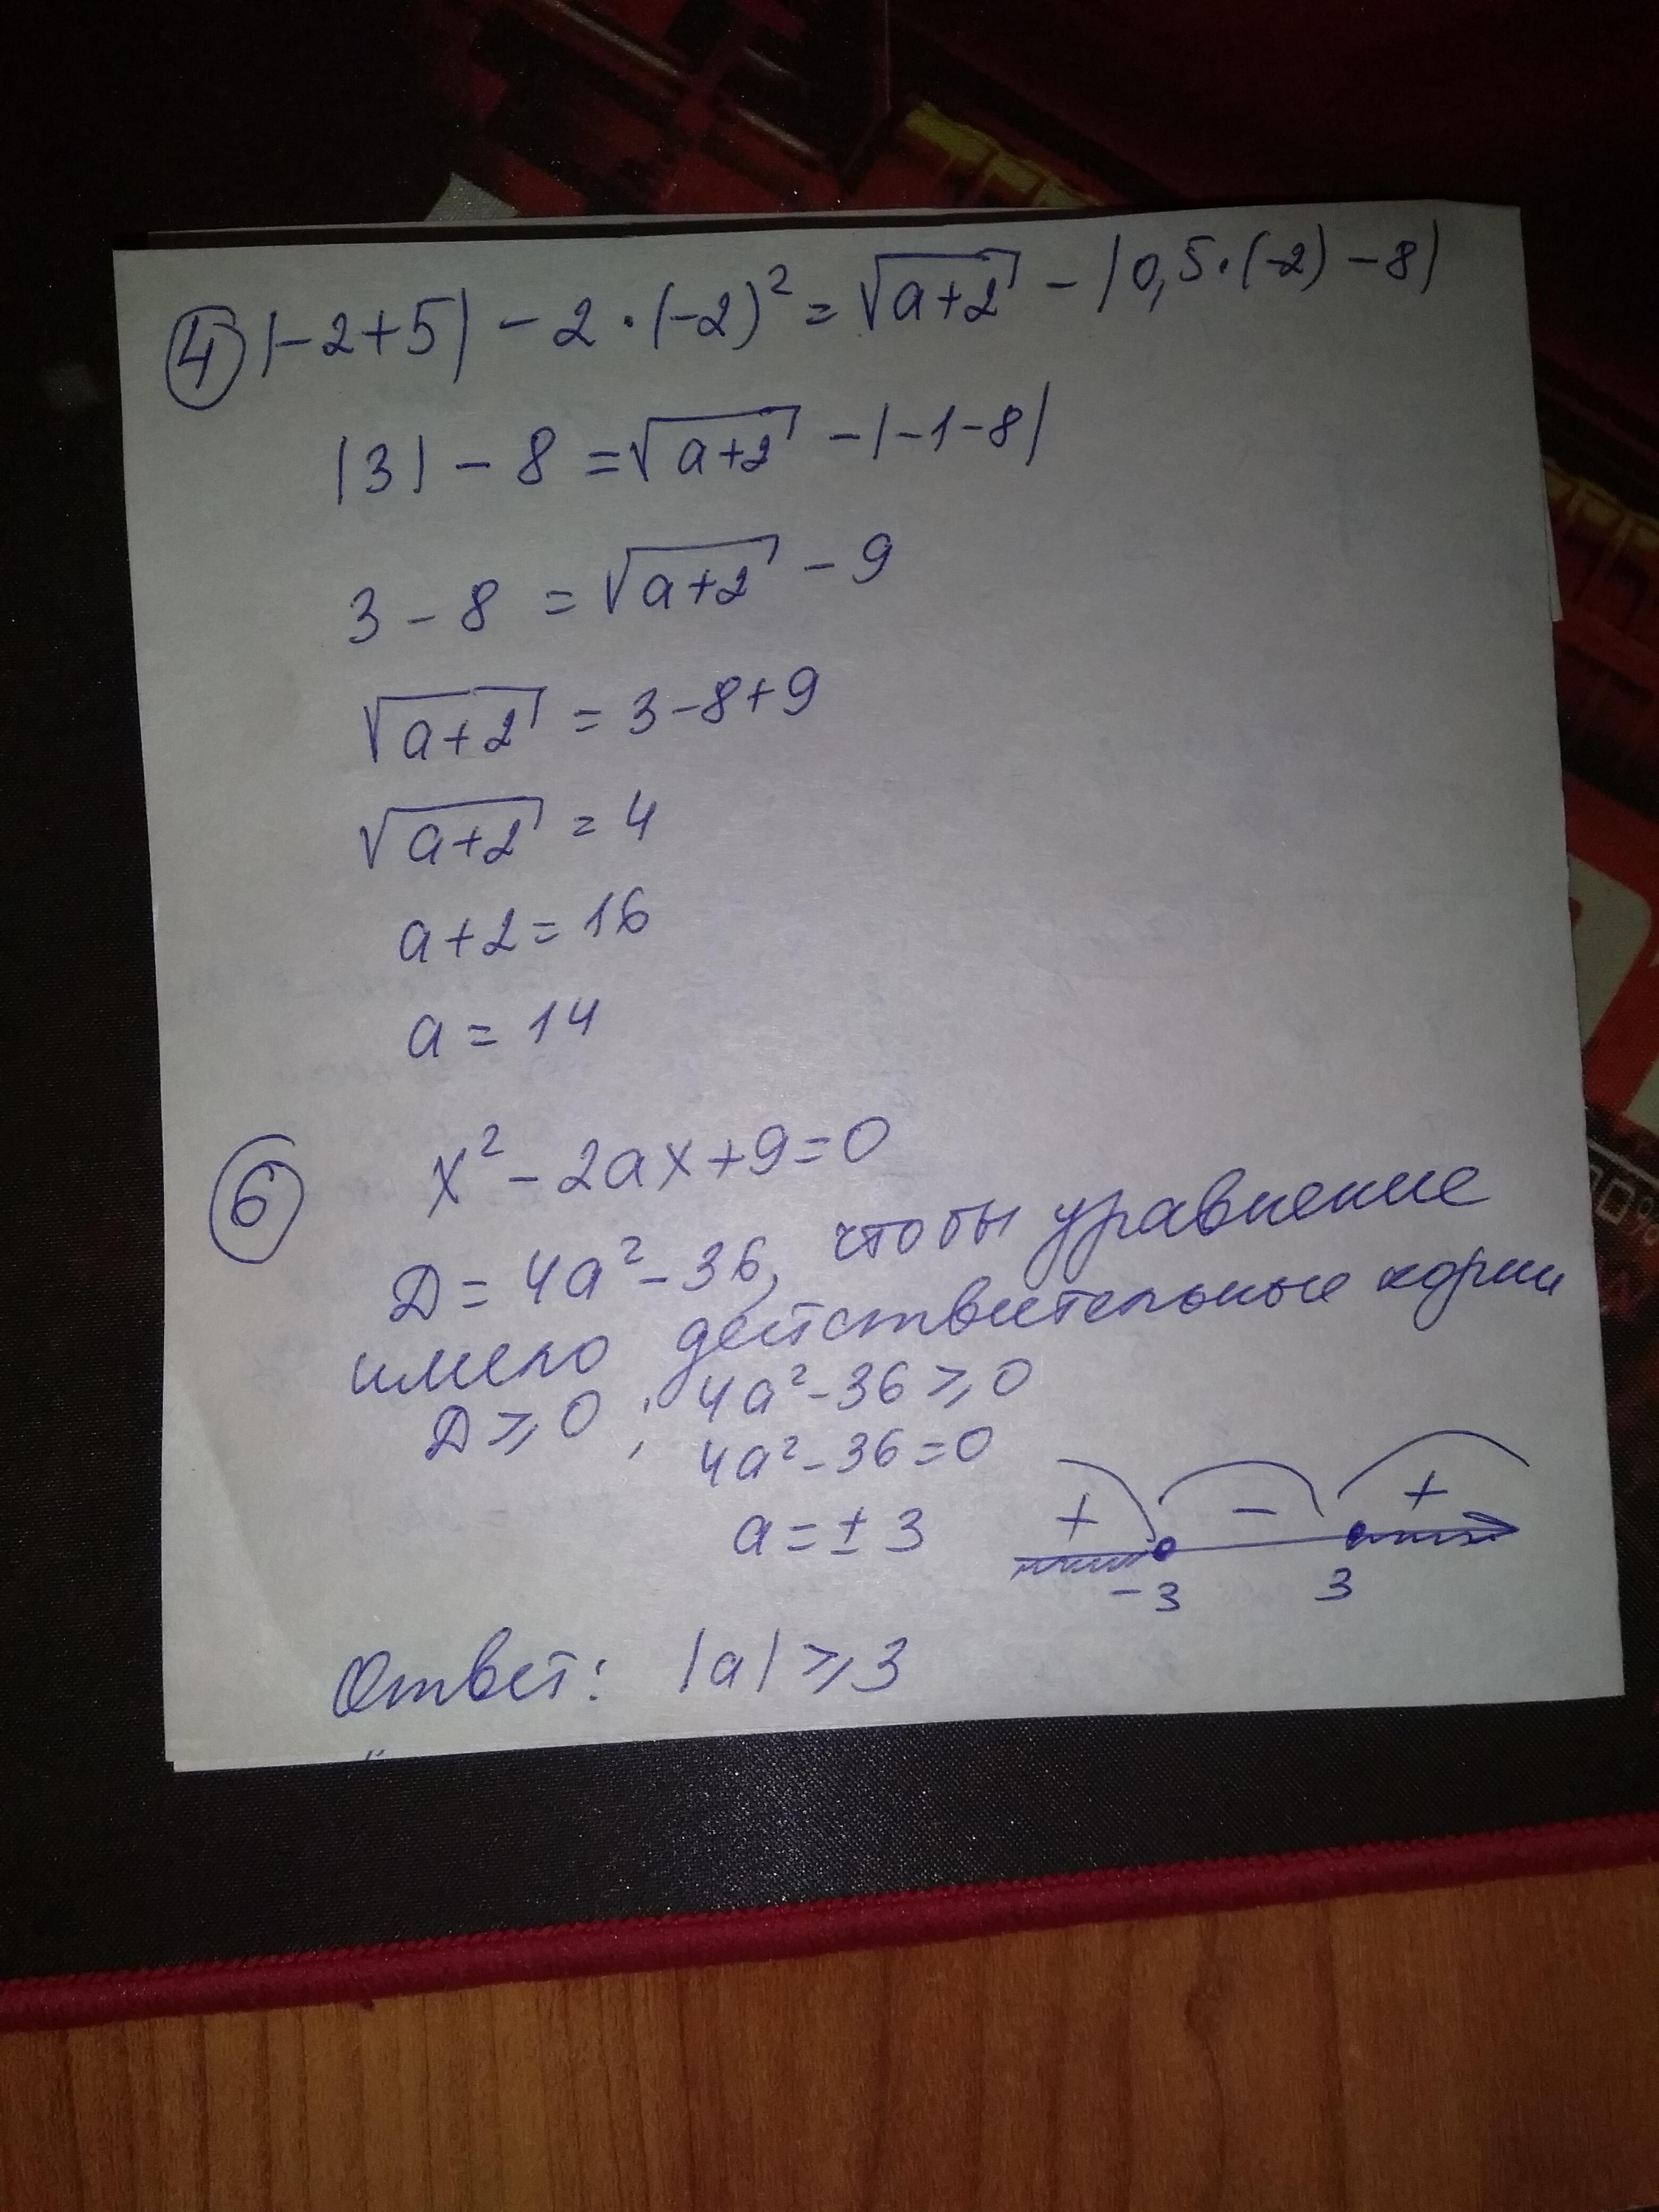 ④ |-2+5| - 2·(-2)² = √(a+2) - |0,5·(-2) - 8|
|3| - 8 = √(a+2) - |-1-8|
3 - 8 = √(a+2) - 9
√(a+2) = 3-8+9
√(a+2) = 4
a+2 = 16
a = 14
⑥ x² - 2ax + 9 = 0
Д = 4a² - 36, чтобы уравнение
имело действительные корни
Д ⩾ 0 ; 4a² - 36 ⩾ 0
4a² - 36 = 0
a = ± 3
+ - +
-3 3
Ответ: |a| ⩾ 3